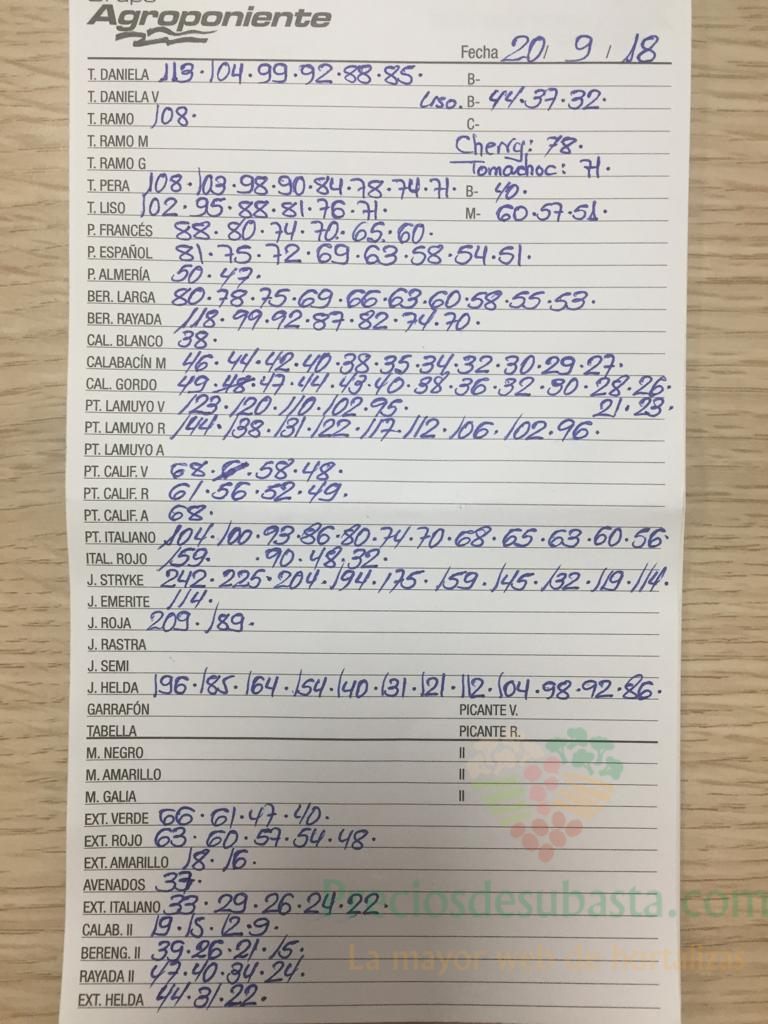 Grupo
Agroponiente
Fecha 20/ 9 / 18
T. DANIELA 113·104·99·92·88·85· B-
T. DANELA V Liso. B- 44·37·32·
T. RAMO 108· C-
T. RAMO M Cherry: 78·
T. RAMO G Tomachoc: 71·
T. PERA 108·103·98·90·84·78·74·71· B- 40·
T. LISO 102·95·88·81·76·71· M- 60·57·51·
P. FRANCÉS 88·80·74·70·65·60·
P. ESPAÑOL 81·75·72·69·63·58·54·51·
P. ALMERÍA 50·47·
BER. LARGA 80·78·75·69·66·63·60·58·55·53·
BER. RAYADA 118·99·92·87·82·74·70·
CAL. BLANCO 38·
CALABACÍN M 46·44·42·40·38·35·34·32·30·29·27·
CAL. GORDO 49·48·47·44·43·40·38·36·32·30·28·26·
PT. LAMUYO V 123·120·110·102·95· 21·23·
PT. LAMUYO R 144·138·131·122·117·112·106·102·96·
PT. LAMUYO A
PT. CALIF. V 68·58·48·
PT. CALIF. R 61·56·52·49·
PT. CALIF. A 68·
PT. ITALIANO 104·100·93·86·80·74·70·68·65·63·60·56·
ITAL. ROJO 159· ·90·48,32·
J. STRYKE 242·225·204·194·175·159·145·132·119·114·
J. EMERITE 114·
J. ROJA 209·189·
J. RASTRA
J. SEMI
J. HELDA 196·185·164·154·140·131·121·112·104·98·92·86·
GARRAFÓN PICANTE V.
TABELLA PICANTE R.
M. NEGRO II
M. AMARILLO II
M. GALIA II
EXT. VERDE 66·61·47·40·
EXT. ROJO 63·60·57·54·48·
EXT. AMARILLO 18·16·
AVENADOS 37·
Preciosdesubasta.com
EXT. ITALIANO 33·29·26·24·22·
CALAB. II 19·15·12·9·
La mayor web de hortalizas
BERENG. II 39·26·21·15·
RAYADA II 47·40·34·24·
EXT. HELDA 44·31·22·